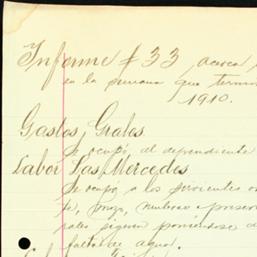 Informe # 33 acerca
en la semana que termin
1910.
Gastos Grales.
Se ocupó al dependiente
Labor Las Mercedes
Se ocupó a los sirvientes
rales siguen poniéndose
falta de agua.